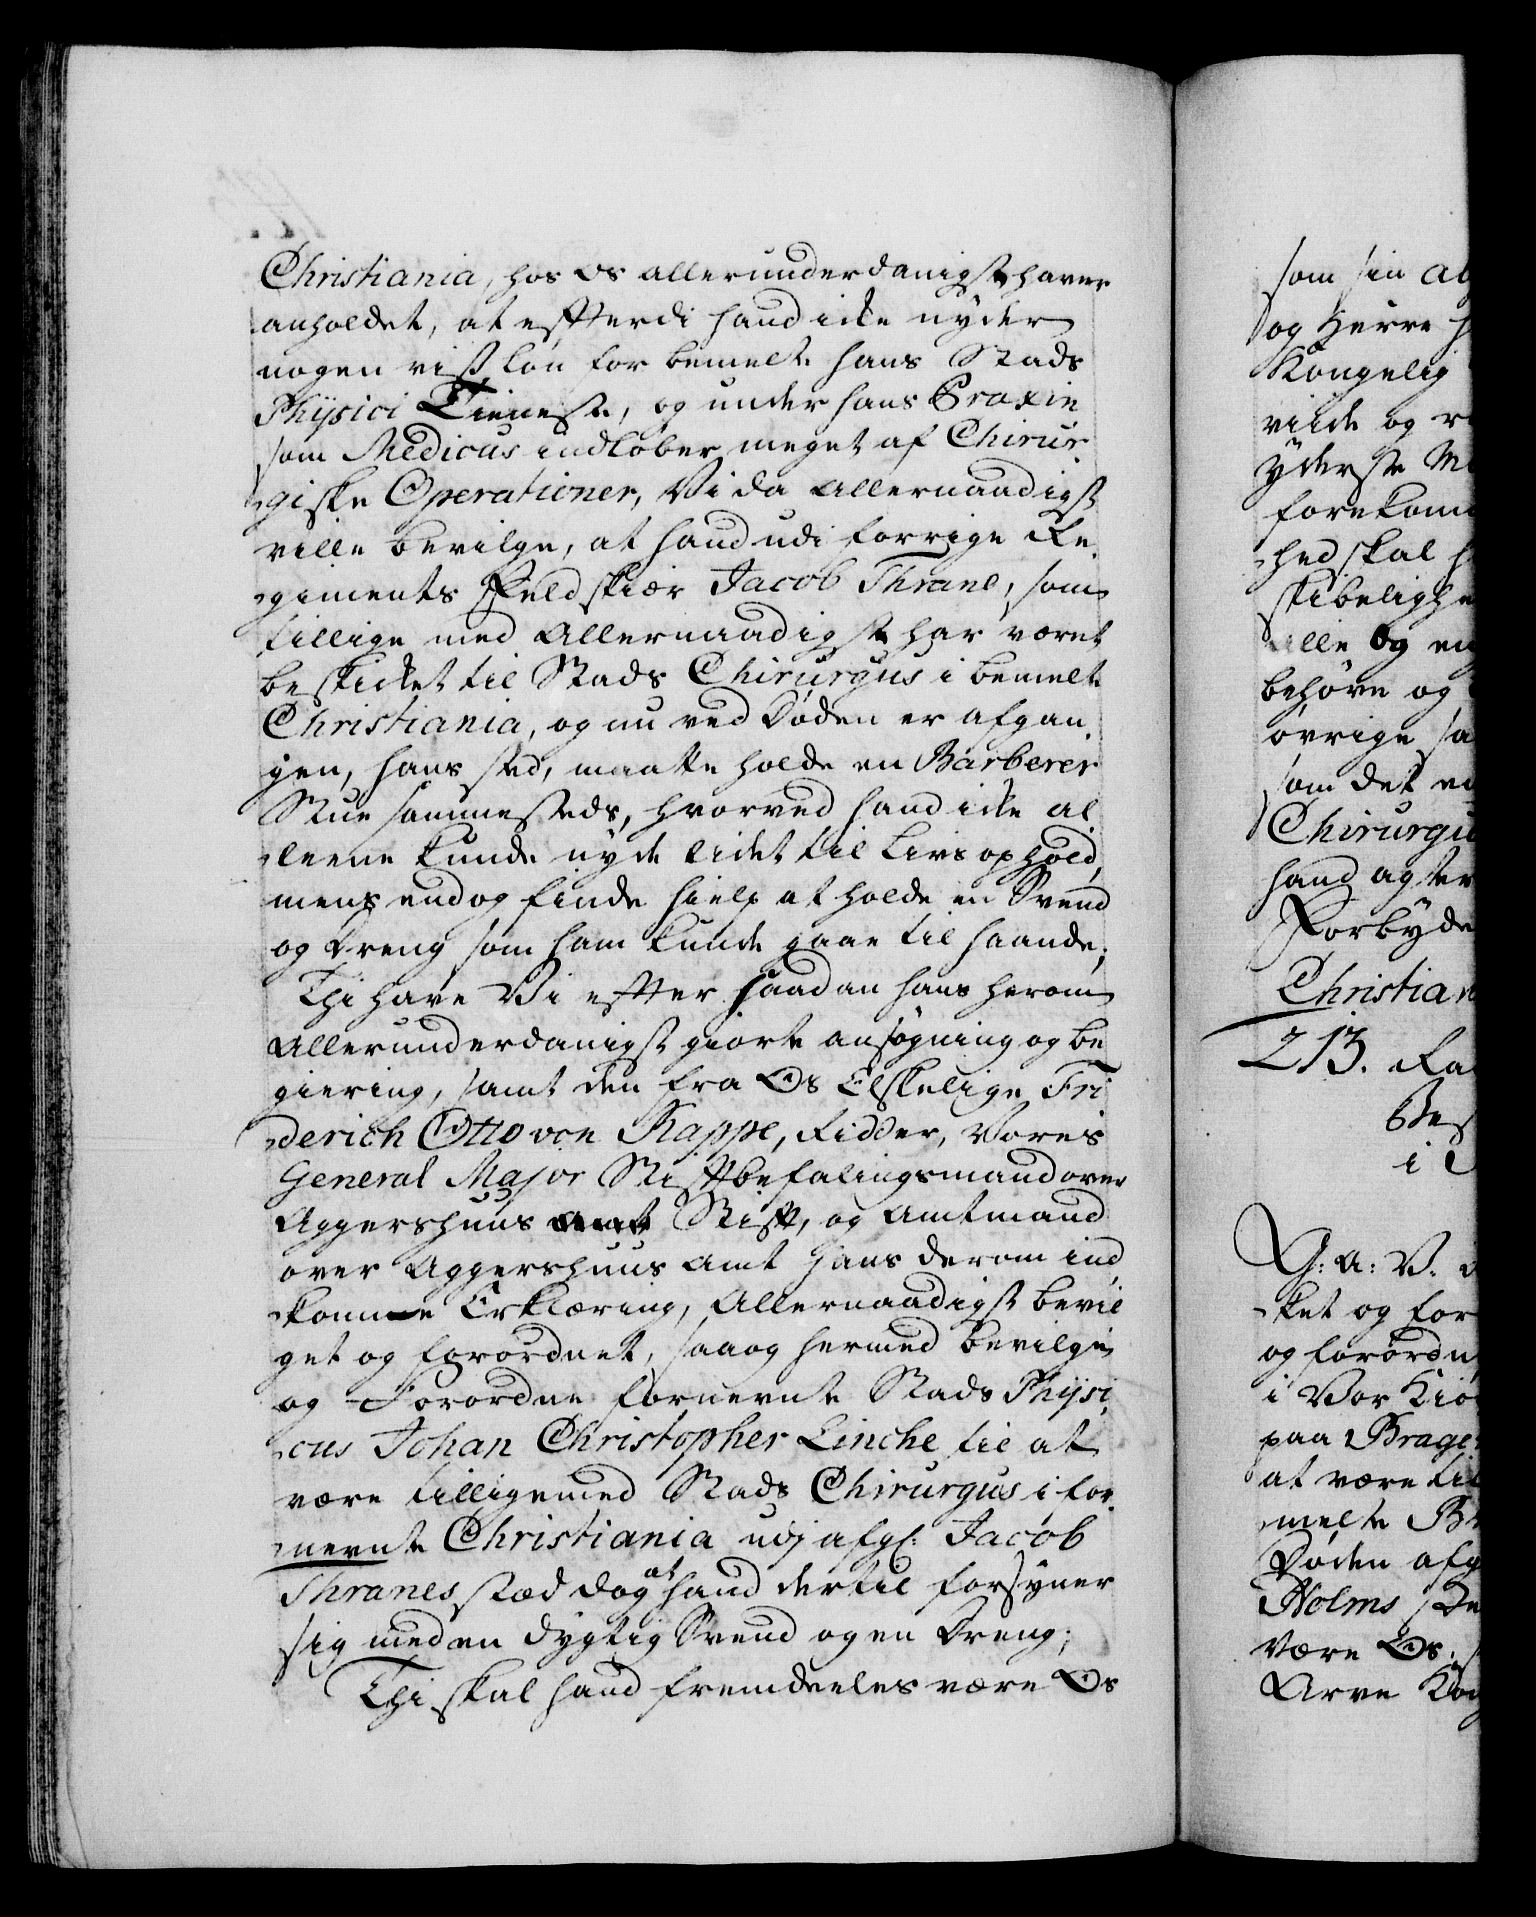 Christiania, hos os allerunderdanigst haver
anholdet, at effterdi hand icke nyder
nogen viß løn for bemelte hans Stads
Physici Tieneste, og under hans Praxin
som Medicus indløber meget af Chirur-
giske Operationer, Vi da allernaadigst
ville bevilge, at hand udi forrige Re-
giments Feldskiær Jacob Thrane, som
tillige med Allernaadigst har været
beskicket til Stads Chirurgus i bemelte
Christiania, og nu ved Døden er afgan-
gen, hans sted, maatte holde en Barberer
Stue sammesteds, hvorved hand icke al
leene kunde nyde lidet til Livs ophold,
mens endog finde hielp at holde en Svend
og Dreng som ham kunde gaae til haande;
Thi have Vi effter saadan hans herom
Allerunderdanigst giorte ansøgning og be
giering, samt den fra Os Elskelige Fri
derich Otto von Rappe, Ridder, Vores
General Major Stifftbefalingsmand over
Aggershuus Stifft, og Amtmand
over Aggershuus Amt hans derom ind
komne Erklæring, Allernaadigst bevil
get og forordnet, saa og hermed bevilge
og Forordne fornevnte Stads Physi-
cus Johan Christopher Linche til at
være tilligemed Stads Chirurgus i for-
nevnte Christiania udj afg: Jacob
Thranes stæd dog at hand dertil forsyner
sig med en dygtig Svend og en Dreng;
Thi skal hand fremdeeles være Os
som sin
og Herre
Kongelig
vilde og
yderste
forekom
hed skal
skibelighe
ille og en
behøve og
øvrige sa
som det
Chirurgu
hand agter
Forbyde
Christian
213.
Bes
G: A: V.
ket og for
og forordn
i Vor Kiø
paa Brage
at være til
melte Br
Døden afg
Holms
være Os,
Arve Kon